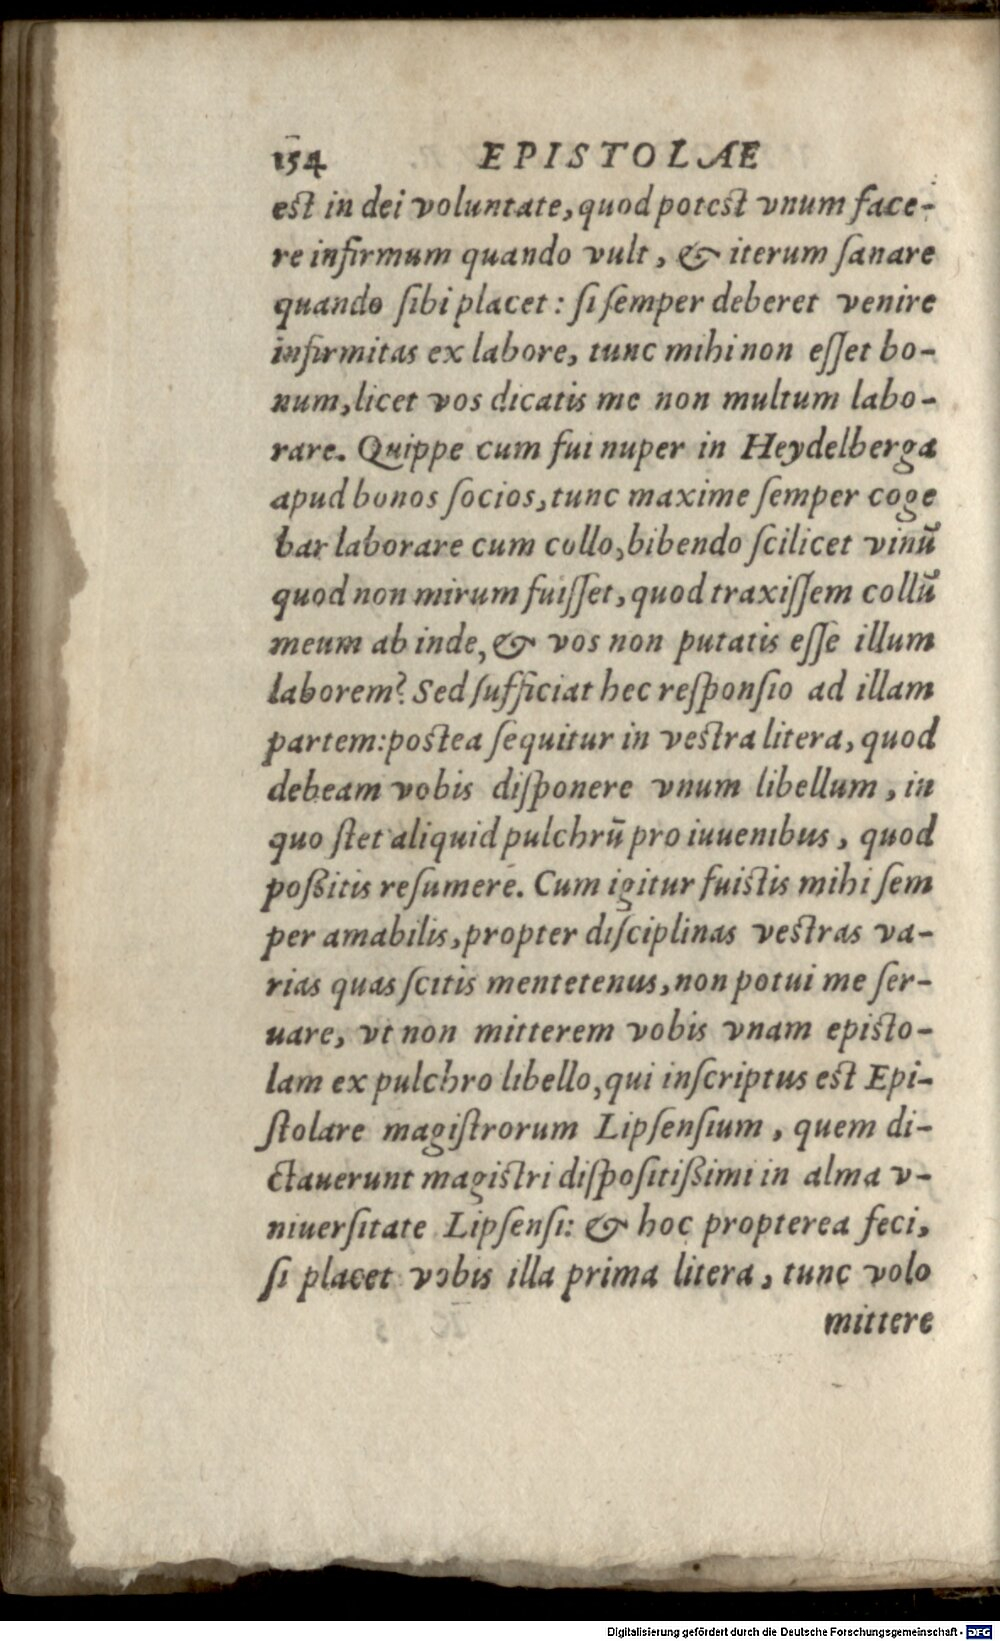 154 EPISTOLAE
est in dei voluntate, quod potest vnum face-
re infirmum quando vult, & iterum ſanare
quando ſibi placet: ſi ſemper deberet venire
infirmitas ex labore, tunc mihi non eſſet bo-
num, licet vos dicatis me non multum labo-
rare. Quippe cum fui nuper in Heydelberga
apud bonos ſocios, tunc maxime ſemper coge
bar laborare cum collo, bibendo ſcilicet vinū
quod non mirum fuiſſet, quod traxiſſem collū
meum ab inde, & vos non putatis eſſe illum
laborem? Sed ſufficiat hec reſponſio ad illam
partem: postea ſequitur in vestra litera, quod
debeam vobis diſponere vnum libellum, in
quo ſtet aliquid pulchrū pro iuuenibus, quod
poßitis reſumere. Cum igitur fuistis mihi ſem
per amabilis, propter diſciplinas vestras va-
rias quas ſcitis mentetenus, non potui me ſer-
uare, vt non mitterem vobis vnam episto-
lam ex pulchro libello, qui inſcriptus est Epi-
ſtolare magiſtrorum Lipſenſium, quem di-
ctauerunt magistri diſpoſitißimi in alma v-
niuerſitate Lipſenſi: & hoc propterea feci,
ſi placet vobis illa prima litera, tunc volo
mittere
Digitalisierung gefördert durch die Deutsche Forschungsgemeinschaft - DFG